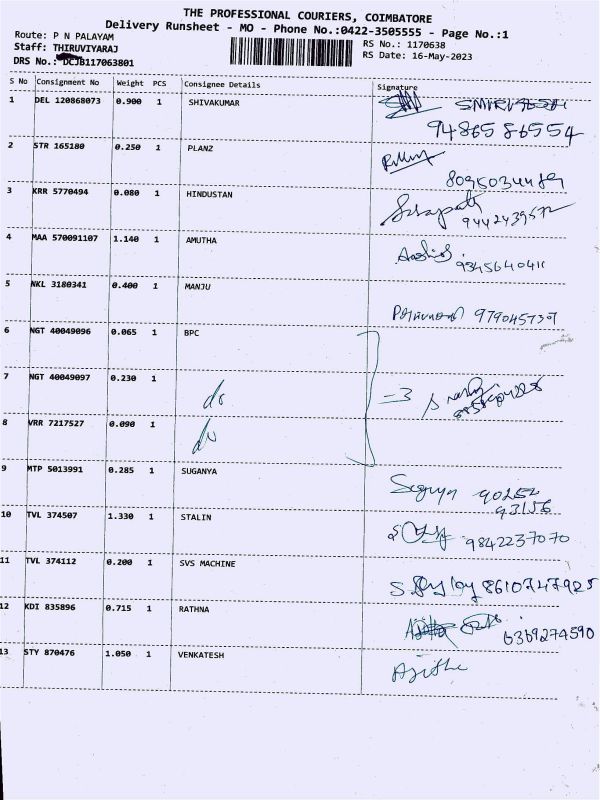 THE PROFESSIONAL COURIERS, COIMBATORE
Delivery Runsheet - MO - Phone No.:0422-3505555 - Page No.:1
Route: P N PALAYAM
RS No.: 1170638
Staff: THIRUVIYARAJ
RS Date: 16-May-2023
DRS No.: DCJB117063801
S No Consignment No Weight PCS Consignee Details Signature
1 DEL 120868073 0.900 1 SHIVAKUMAR
9486586554
2 STR 165180 0.250 1 PLANZ
8095034489
3 KRR 5770494 0.080 1 HINDUSTAN
9442439572
4 MAA 570091107 1.140 1 AMUTHA
9345640411
5 NKL 3180341 0.400 1 MANJU
979045739
6 NGT 40049096 0.065 1 BPC
7 NGT 40049097 0.230 1 do =3
8 VRR 7217527 0.090 1 do
9 MTP 5013991 0.285 1 SUGANYA
Suguyn 90252
93156
10 TVL 374507 1.330 1 STALIN
9842237070
11 TVL 374112 0.200 1 SVS MACHINE
8610747925
12 KDI 835896 0.715 1 RATHNA
6369274590
13 STY 870476 1.050 1 VENKATESH
Ajithe